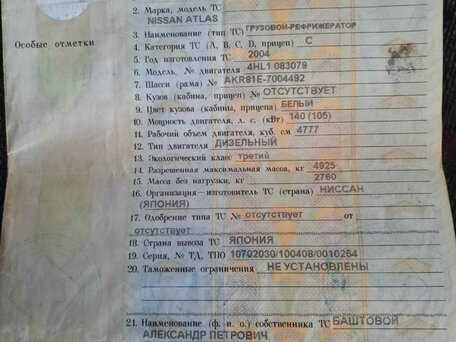 2. Марка, модель ТС
NISSAN ATLAS
3. Наименование (тип ТС) ГРУЗОВОЙ-РЕФРИЖЕРАТОР
Особые отметки
4. Категория ТС (А, В, С, D, прицеп) С
5. Год изготовления ТС 2004
6. Модель, № двигателя 4HL1 083079
7. Шасси (рама) № AKR81E-7004492
8. Кузов (кабина, прицеп) № ОТСУТСТВУЕТ
9. Цвет кузова (кабины, прицепа) БЕЛЫЙ
10. Мощность двигателя, л. с. (кВт) 140 (105)
11. Рабочий объем двигателя, куб. см 4777
12. Тип двигателя ДИЗЕЛЬНЫЙ
13. Экологический класс третий
14. Разрешенная максимальная масса, кг 4925
15. Масса без нагрузки, кг 2760
16. Организация—изготовитель ТС (страна) НИССАН
(ЯПОНИЯ)
17. Одобрение типа ТС № отсутствует от
отсутствует
18. Страна вывоза ТС ЯПОНИЯ
19. Серия, № ТД, ТПО 10702030/100408/0010264
20. Таможенные ограничения НЕ УСТАНОВЛЕНЫ
21. Наименование (ф. и. о.) собственника ТС БАШТОВОЙ
АЛЕКСАНДР ПЕТРОВИЧ